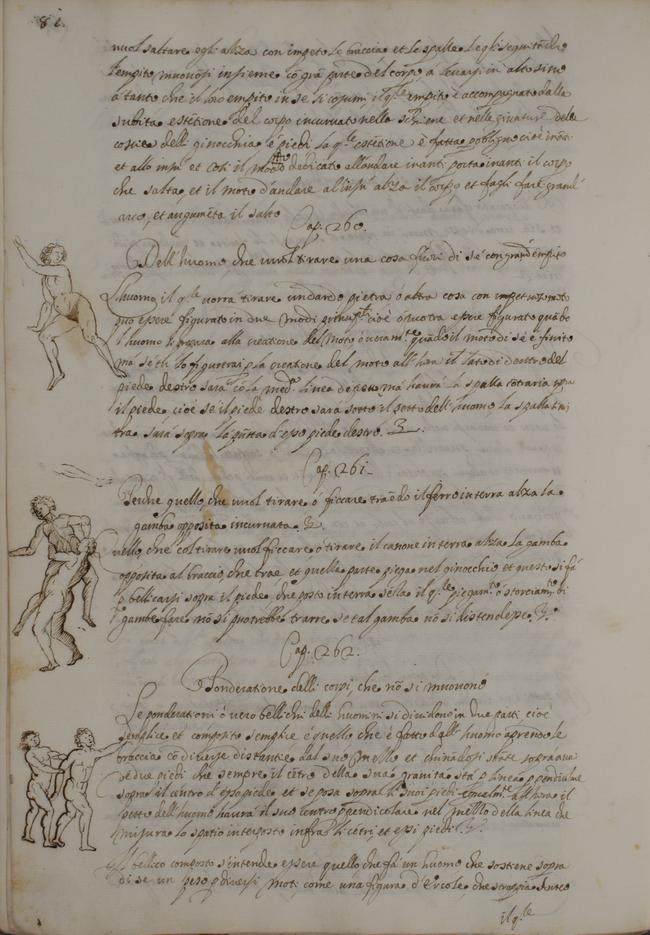 81.
vuol saltare egli alza con impeto le braccia et le spalle le qli seguitādo
l'empito muovōsi insieme cō grā parte del corpo à levarsi in alto sino
a tanto che il loro empito in se si cōsumi il qle empito è accompagnato dalla
subita estētione del corpo incurvato nella schiena et nelle giunture delle
coscie delli ginocchia e piedi la qle estētione è fatta p obbliquo cioè ināti
et allo insù et così il moto dedicato all'andare inanti porta inanti il corpo
che salta, et il moto d'andare al'insù alza il corpo et fagli fare grand'
arco, et augumēta il salto
Cap. 260.
Dell'huomo che vuol tirare una cosa fuori di sé con grand'empito
L'huomo, il qle vorrà tirare un dardo pietra ò altra cosa con
può essere figurato in due modi cioè ò potrà essere figurato quādo
l'huomo si prepara alla creatione del moto ò veramte quādo il moto di sé è finito
ma se tu lo figurerai p la creatione del moto all'hora il lato di dentro del
piede destro sarà cō la medª linea del petto ma haurà la spalla cōtraria sopra
il piede cioè se il piede destro sarà sotto il peso dell'huomo la spalla sini
tra sarà sopra la pūta d'esso piede destro.
Cap. 261.
Perche quello, che vuol tirare ò ficcare traēdo il ferro in terra alza la
gamba opposita incurvata.
uello, che col tirare vuol ficcare ò tirare il canone in terra alza la gamba
opposita al braccio, che trae et quella parte piega nel ginocchio et questo si fà
p bellicarsi sopra il piede che posto in terra senza il qle piegamto ò storciamto di
gambe fare nō si potrebbe trarre se tal gamba nō si distendesse.
Cap. 262.
Ponderatione delli corpi, che nō si muovono
Le ponderationi ò vero bellichi delli huomini si dividono in due parti cioè
semplice et composito semplice è quello che è fatto dall'huomo
braccia cō diverse distantie dal suo mezzo et chinādosi stāte sopra
ò due piedi che sempre il cētro della sua gravità stà p linea ppendicolare
sopra il centro d'esso piede et se posa sopra li suoi piedi equalmte all'hora il
petto dell'huomo haurà il suo centro ppendicolare nel mezzo della linea che
misura lo spatio interposto infra li cētri et essi piedi.
Il bellico composto s'intende essere quello, che fà un huomo che sostiene sopra
di se un peso p diversi moti come una figura d'Ercole, che scoppia Anteo
il qle